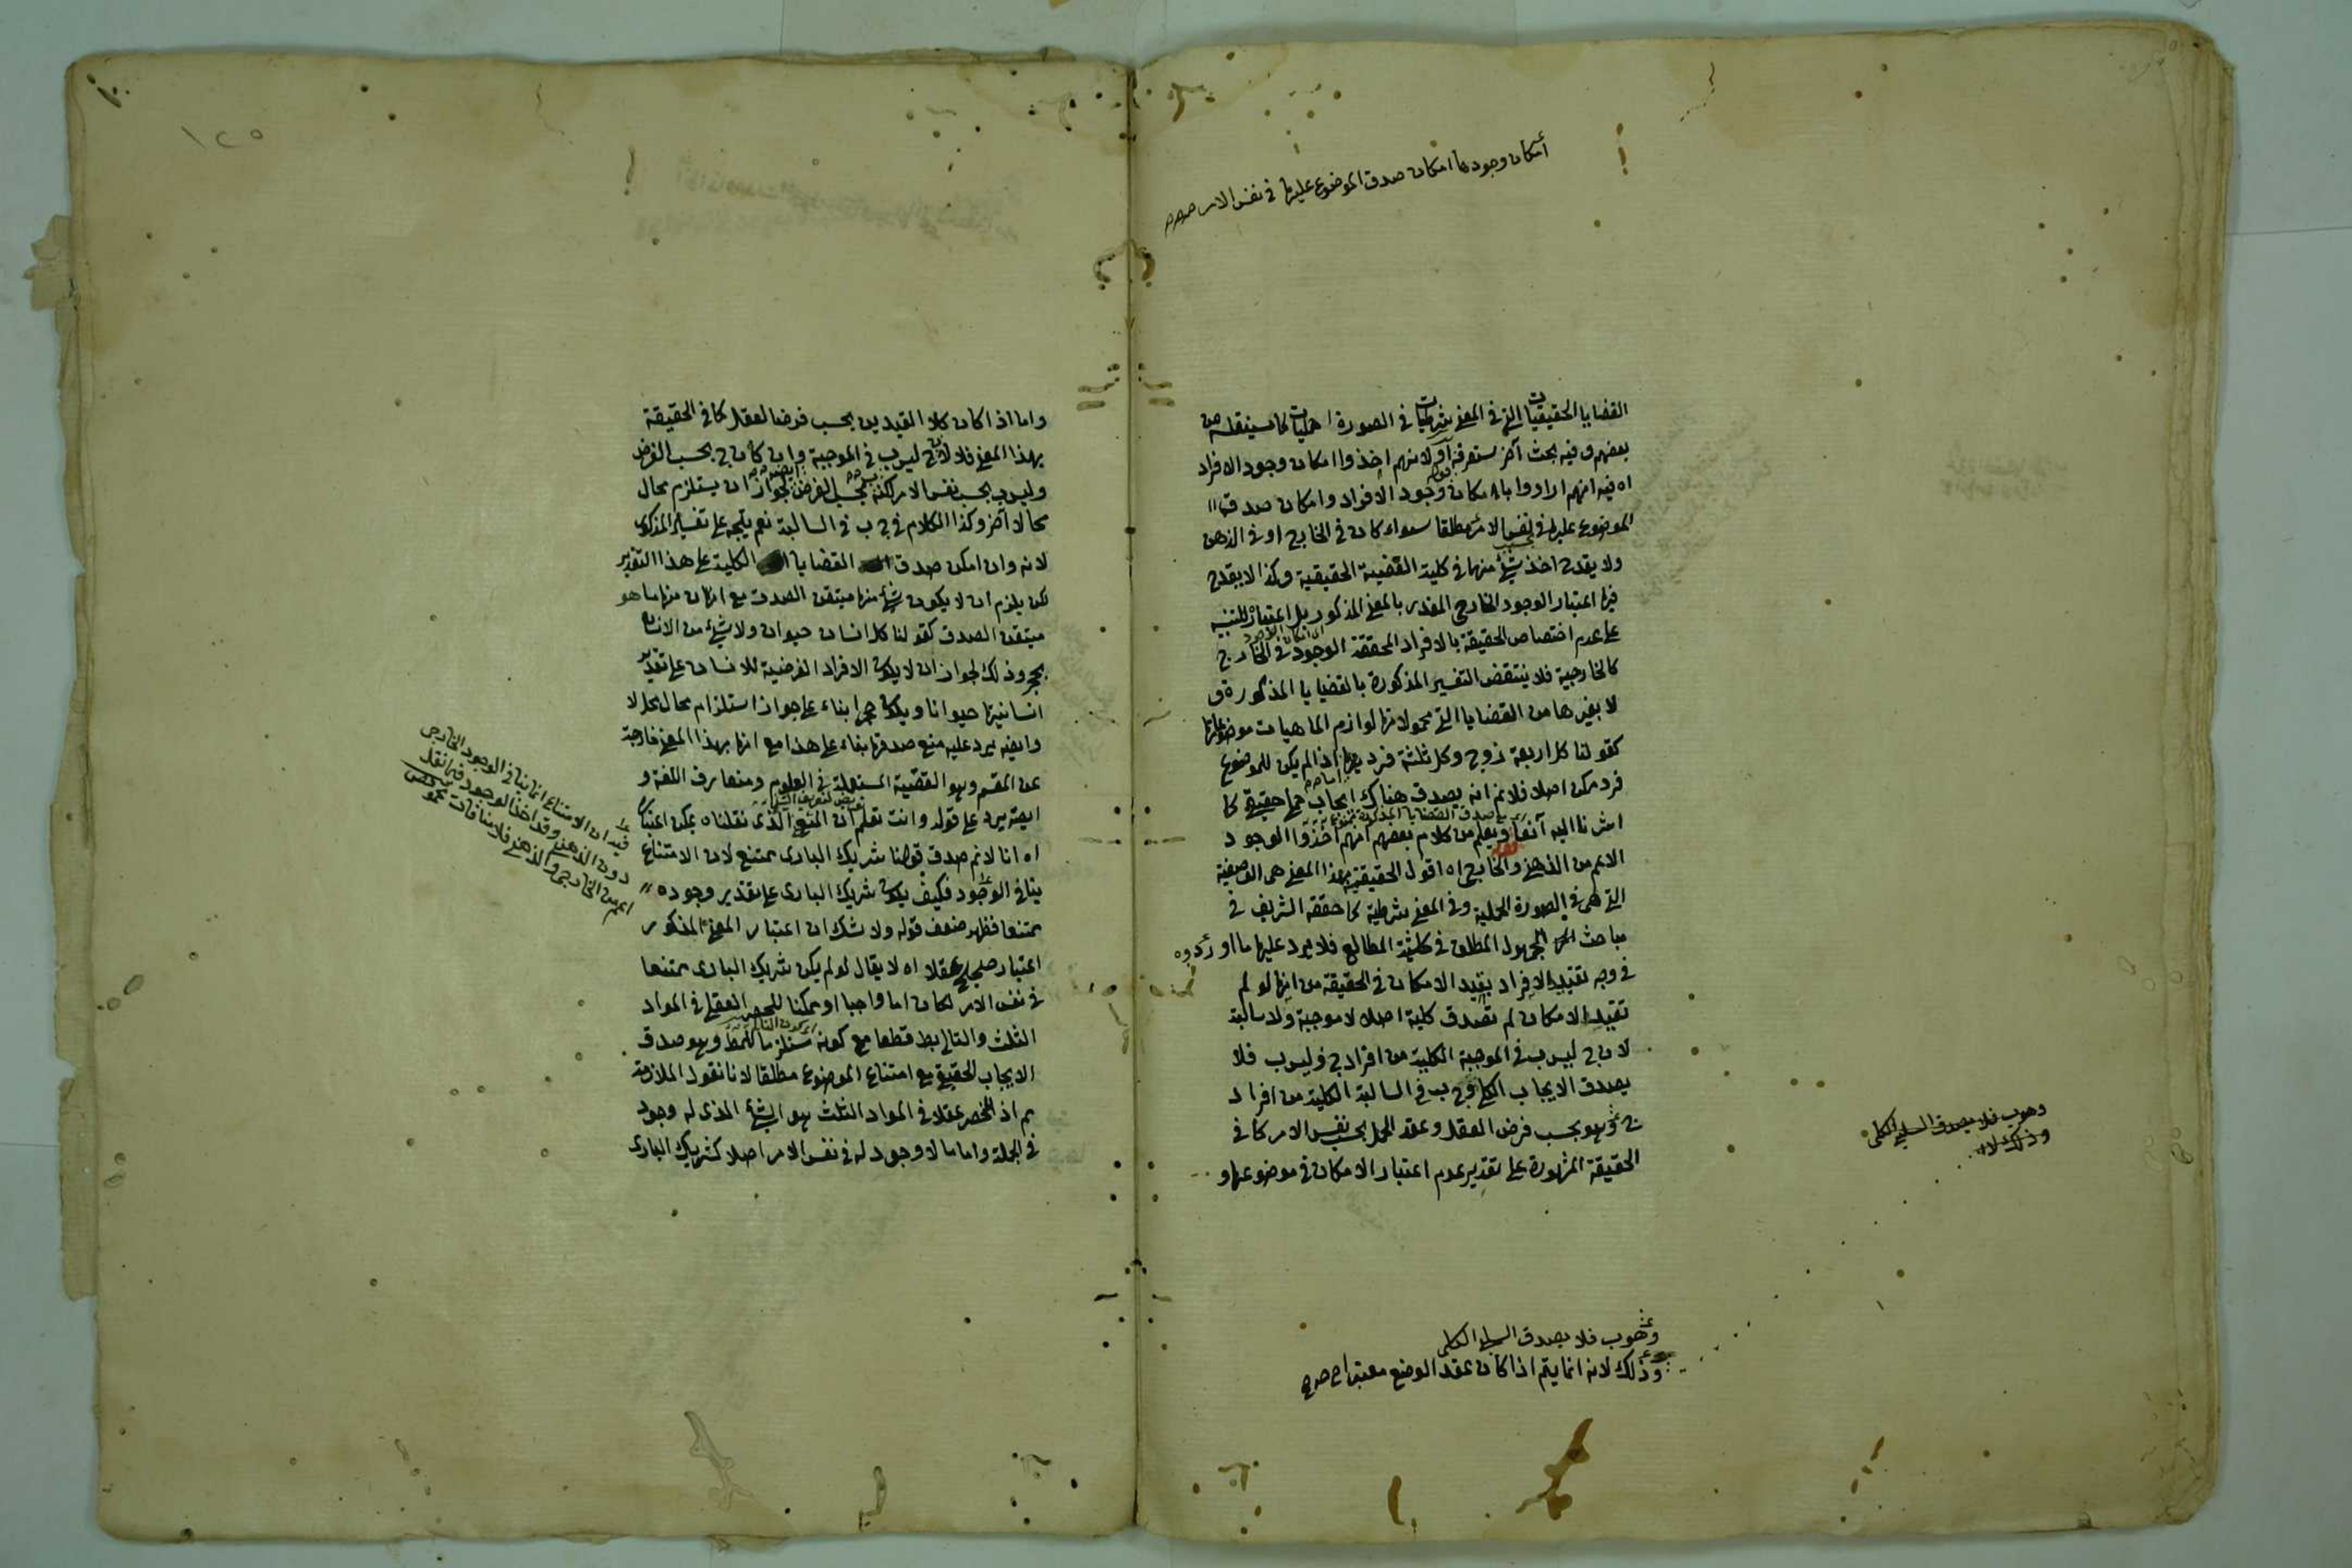 امكان وجودها امكان صدق الموضوع عليها في نفس الامر
القضايا الحقيقيات التي في المعنى شرطيات في الصورة حمليات كما سينقله من
بعضهم وفيه بحث آخر ستعرفه او لانهم اخذوا امكان وجود الافراد
اه فيه انهم ارادوا بامكان وجود الافراد امكان صدق
الموضوع عليها في نفس الامر مطلقا سواء كان في الخارج او في الذهن
ولا يقدح اخذ شئ منها في كلية القضية الحقيقية وكذا لا يقدح
فيها اعتبار الوجود الخارجي المقدر بالمعنى المذكور بل اعتباره للتنبيه
على عدم اختصاص الحقيقة بالافراد المحققة الوجود في الخارج
كالخارجية فلا ينتقض التفسير المذكورة بالقضايا المذكورة و
لا بغيرها من القضايا التي محمولاتها لوازم الماهيات موضوعاتها
كقولنا كل اربعة زوج وكل ثلثة فرد اذا لم يكن للموضوع
فرد ممكن اصلا فلانم انه يصدق هناك ايجاب حقيقي كما
اشرنا اليه آنفا ويعلم من كلام بعضهم انهم اخذوا الوجود
الاعم من الذهني والخارجي اه اقول الحقيقية بهذا المعنى هي الفرضية
التي هي في الصورة الحملية وفي المعنى شرطية كما حققه الشريف في
مباحث المجهول المطلق في حاشية المطالع فلا يرد عليها ما اوردوه
في وجه تقييد الافراد بقيد الامكان في الحقيقة من انها لو لم
تقيد بالامكان لم تصدق كلية اصلا لا موجبة ولا سالبة
لان ج ليس ب في الموجبة الكلية من افراد ج وليس ب فلا
يصدق الايجاب الكلي وج ب في السالبة الكلية من افراد
ج وهو بحسب فرض العقل وعقد الحمل بحسب نفس الامر كما في
الحقيقة المشهورة على تقدير عدم اعتبار الامكان في موضوعها و
وهو ب فلا يصدق السلب الكلي
وذلك لانه
وهو ب فلا يصدق السلب الكلي
وذلك لانه انما يتم اذا كان عقد الوضع معتبرا
١٢٥
واما اذا كان كلا القيدين بحسب فرض العقل كما في الحقيقة
بهذا المعنى فلا لان ج ليس ب في الموجبة وان كان ج بحسب الفرض
وليس ب بحسب نفس الامر لكنه بحسب الفرض لجواز ان يستلزم محال
محالا آخر وكذا الكلام في ج ب في السالبة نعم يتجه على تفسير المذكور
لانه وان امكن صدق القضايا الكلية على هذا التقدير
لكن يلزم ان لا يكون شئ منها متيقن الصدق مع ان منها ما هو
متيقن الصدق كقولنا كل انسان حيوان ولا شئ من الانسان
بحجر وذلك لجواز ان لا يكون الافراد الفرضية للانسان على تقدير
انسانيتها حيوانا ويكون حجرا بناء على جواز استلزام محال محالا
وايضا يرد عليه منع صدقها بناء على هذا مع انها بهذا المعنى خارجة
عن المقسم وهو القضية المستعملة في العلوم ومتعارف اللغة و
ايضا يرد على قوله وانت تعلم ان المنع الذي نقلناه يمكن اعتباره
اه انا لانم صدق قولنا شريك الباري ممتنع لان الامتناع
ينافي الوجود فكيف يكون شريك الباري على تقدير وجوده
ممتنعا فظهر ضعف قوله ولا شك ان اعتبار المعنى المذكور
اعتبار صحيح عقلا اه لا يقال لو لم يكن شريك الباري ممتنعا
في نفس الامر لكان اما واجبا او ممكنا للحصر العقلي في المواد
الثلث والتالي بط قطعا مع كونه مستلزما للمط وهو صدق
الايجاب الحقيقي مع امتناع الموضوع مطلقا لانا نقول الملازمة
مم اذ المنحصر عقلا في المواد الثلث هو الشئ الذي له وجود
في الجملة واما ما لا وجود له في نفس الامر اصلا كشريك الباري
فيه ان الامتناع انما ينافي الوجود الخارجي
دون الذهني وقد اخذ الوجود فيما نقل
اعم من الخارجي والذهني فلا منافات